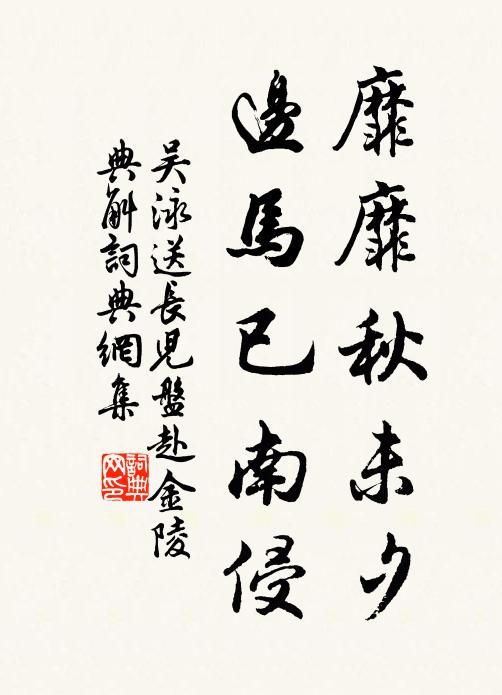 靡靡秋未夕
邊馬已南侵
吴泳送長児盤赴金陵
典斛詞典網集
詞典
网印